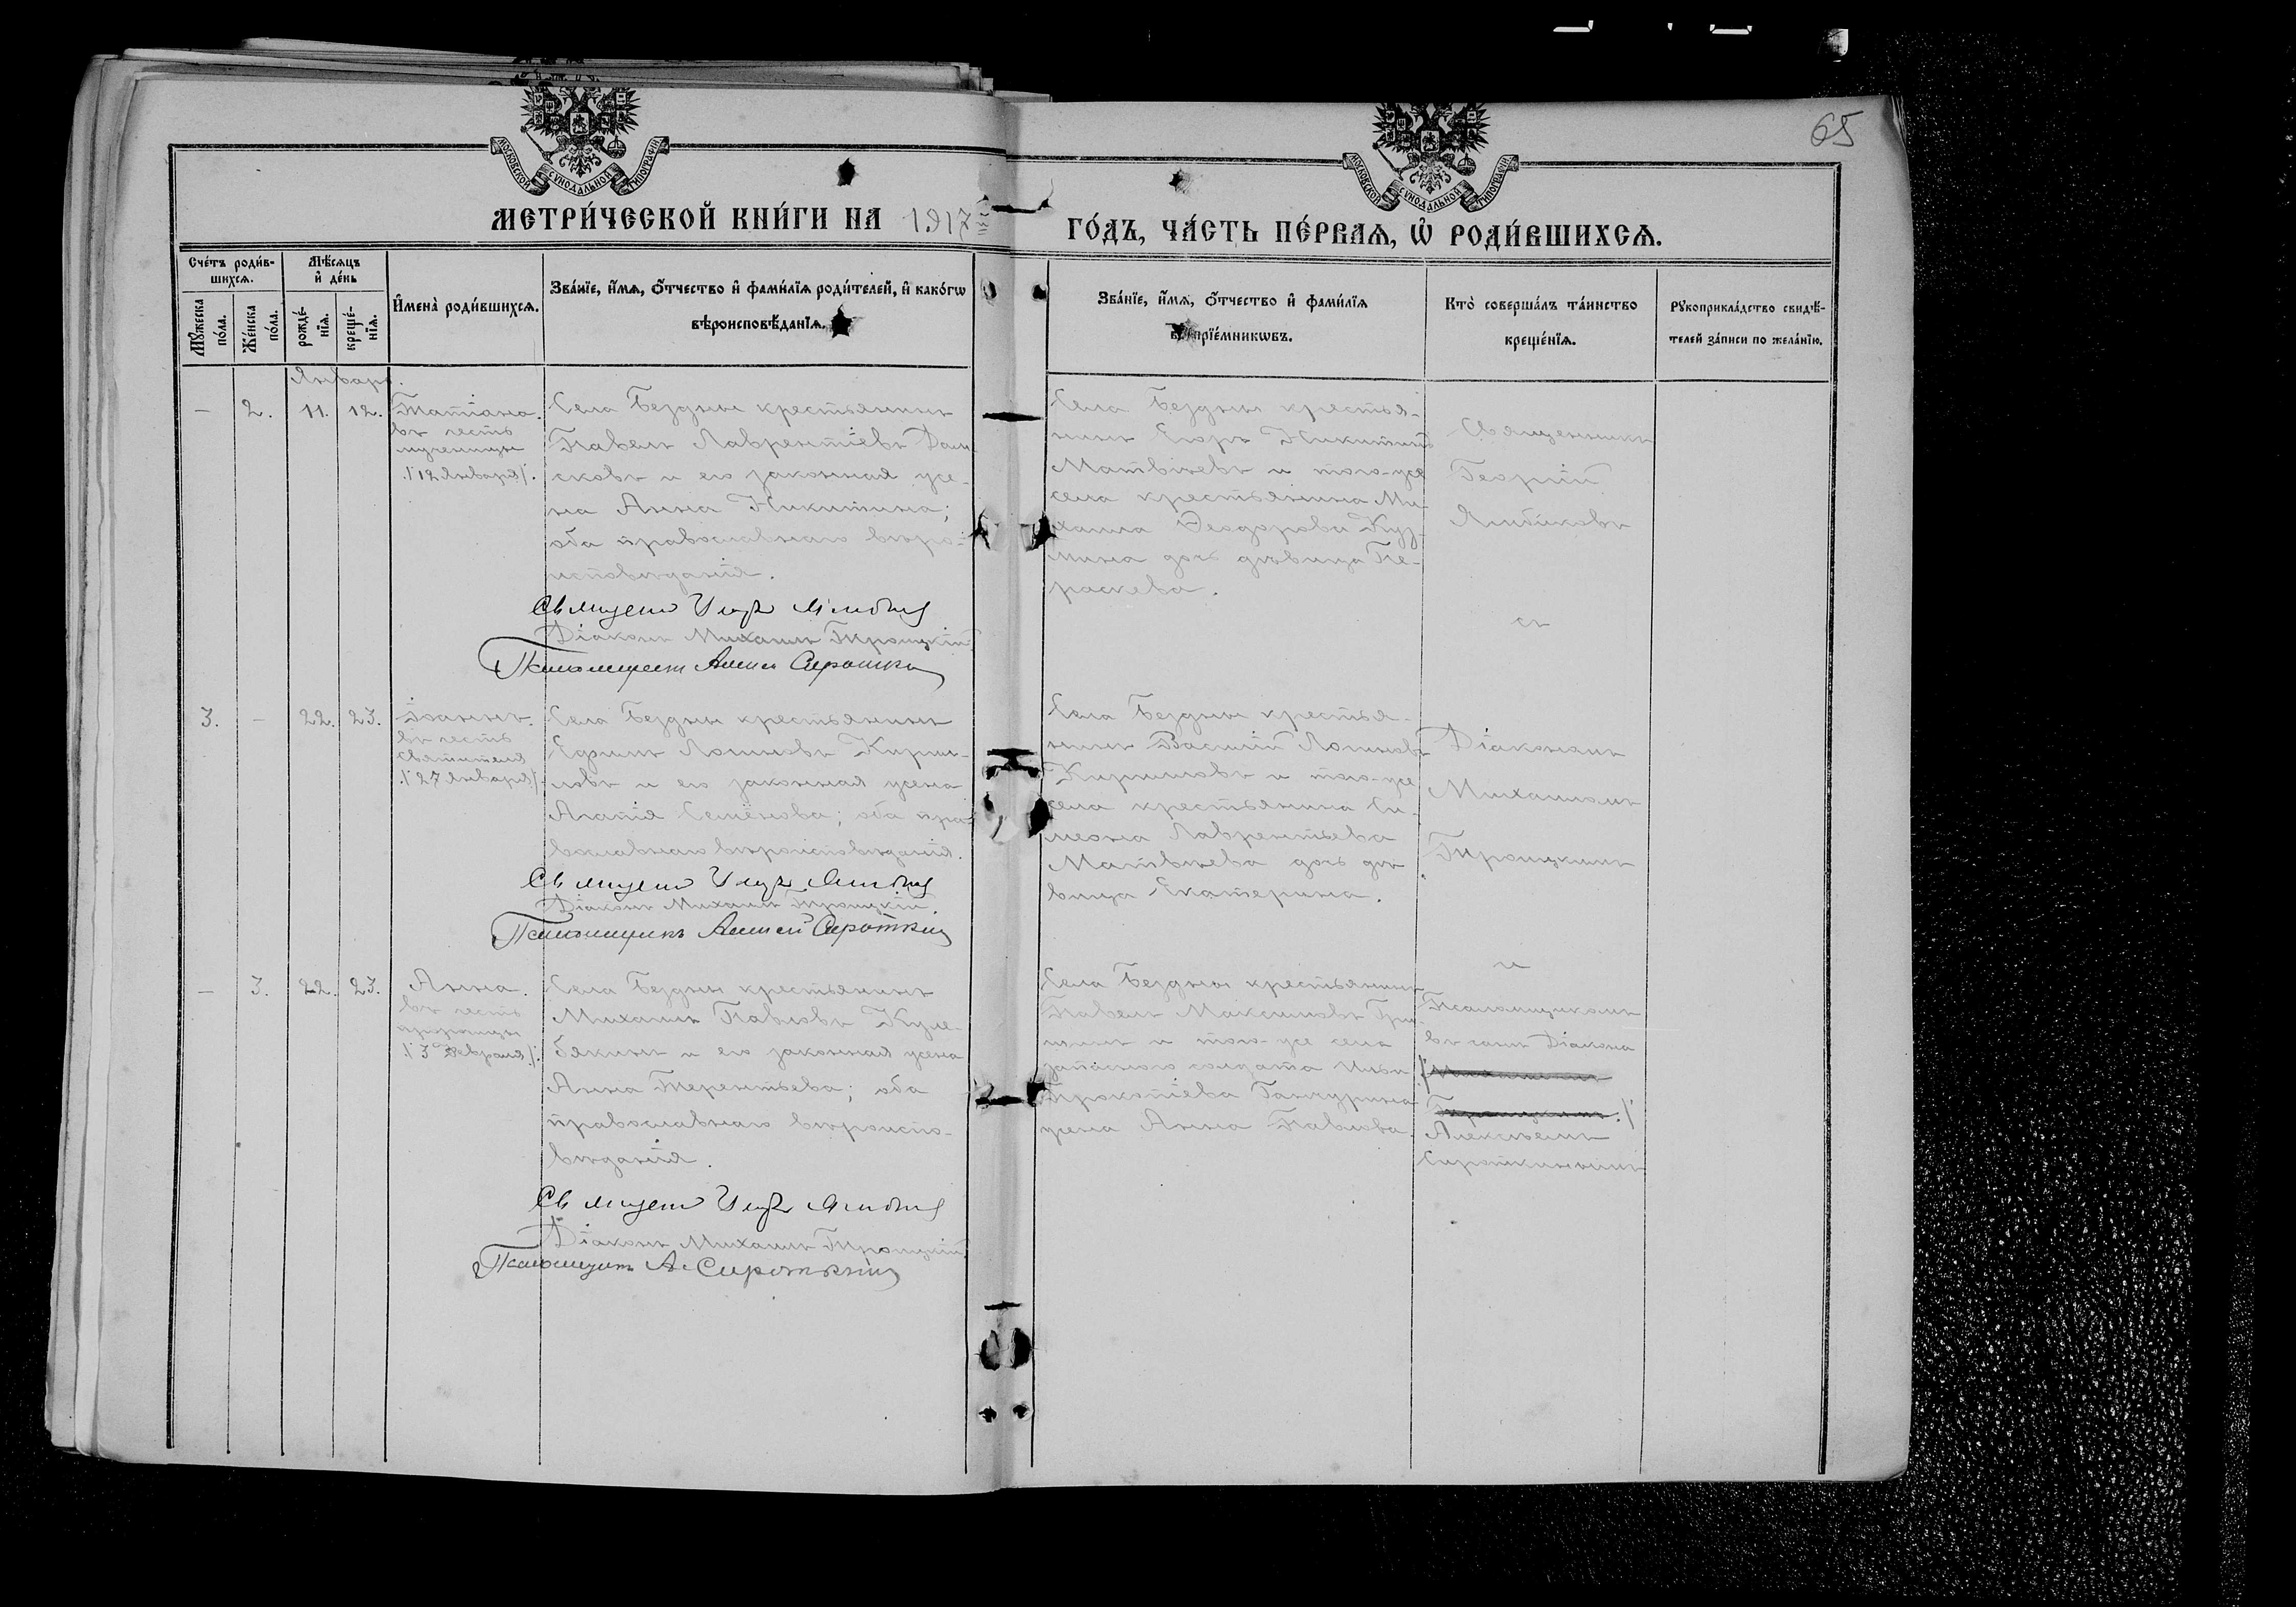 65
МОСКОВСКОЙ СѴНОДАЛЬНОЙ ТИПОГРАФІИ
МОСКОВСКОЙ СѴНОДАЛЬНОЙ ТИПОГРАФІИ
МЕТРИ́ЧЕСКОЙ КНИ́ГИ НА 1917 ГО́ДЪ, ЧА́СТЬ ПЕ́РВАѦ, Ѡ҆ РОДИ́ВШИХСѦ.
Сче́тъ роди́в-
шихсѧ.
Мꙋжеска по́ла.
Же́нска по́ла.
Мѣ́сѧцъ
и҆ де́нь
рожде́-
нїѧ.
креще́-
нїѧ.
И҆мена̀ роди́вшихсѧ.
Зва́нїе, и҆́мѧ, ѻ҆́тчество и҆ фами́лїѧ роди́телей, и҆ како́гѡ
вѣроисповѣ́данїѧ.
Зва́нїе, и҆́мѧ, ѻ҆́тчество и҆ фами́лїѧ
воспрїе́мникѡвъ.
Кто̀ соверша́лъ та́инство
креще́нїѧ.
Рꙋкоприкла́дство свидѣ́-
телей за́писи по жела́нїю.
Январь.
— 2. 11. 12.
Татіана.
въ честь
мученицы
/:12 Января:/.
Села Бездны крестьянинъ
Павелъ Лаврентіевъ Дом-
сковъ и его законная же-
на Анна Никитина;
оба православнаго вѣро-
исповѣданія.
Діаконъ Михаилъ Троицкій
Псаломщикъ Алексей Сироткин
Села Бездны крестья-
нинъ Егоръ Никитинъ
Матвѣевъ и того-же
села крестьянина Ми-
хаила Ѳеодорова Куз-
мина дочь дѣвица Па-
раскева.
Священникъ
Георгій
Ялибиковъ
съ
3. — 22. 23.
Іоаннъ.
въ честь
святителя
/:27 Января:/.
Села Бездны крестьянинъ
Ефимъ Логиновъ Кирил-
ловъ и его законная жена
Агапія Семёнова; оба пра-
вославнаго вѣроисповѣданія.
Діаконъ Михаилъ Троицкій.
Псаломщикъ Алексей Сироткин
Села Бездны крестья-
нинъ Василій Логиновъ
Кирилловъ и того-же
села крестьянина Си-
меона Лаврентьева
Матвѣева дочь дѣ-
вица Екатерина.
Діаконъ
Михаиломъ
Троицкимъ
и
— 3. 22. 23.
Анна.
въ честь
пророчицы
/:3 Февраля:/.
Села Бездны крестьянинъ
Михаилъ Павловъ Куле-
бякинъ и его законная жена
Анна Терентьева; оба
православнаго вѣроиспо-
вѣданія.
Діаконъ Михаилъ Троицкій.
Псаломщикъ А. Сироткин
Села Бездны крестьянинъ
Павелъ Максимовъ Гри-
шинъ и того-же села
запаснаго солдата Ильи
Прокопіева Ганчурина
жена Анна Павлова.
Псаломщикомъ
въ санѣ Діакона
Алексѣемъ
Сироткинымъ